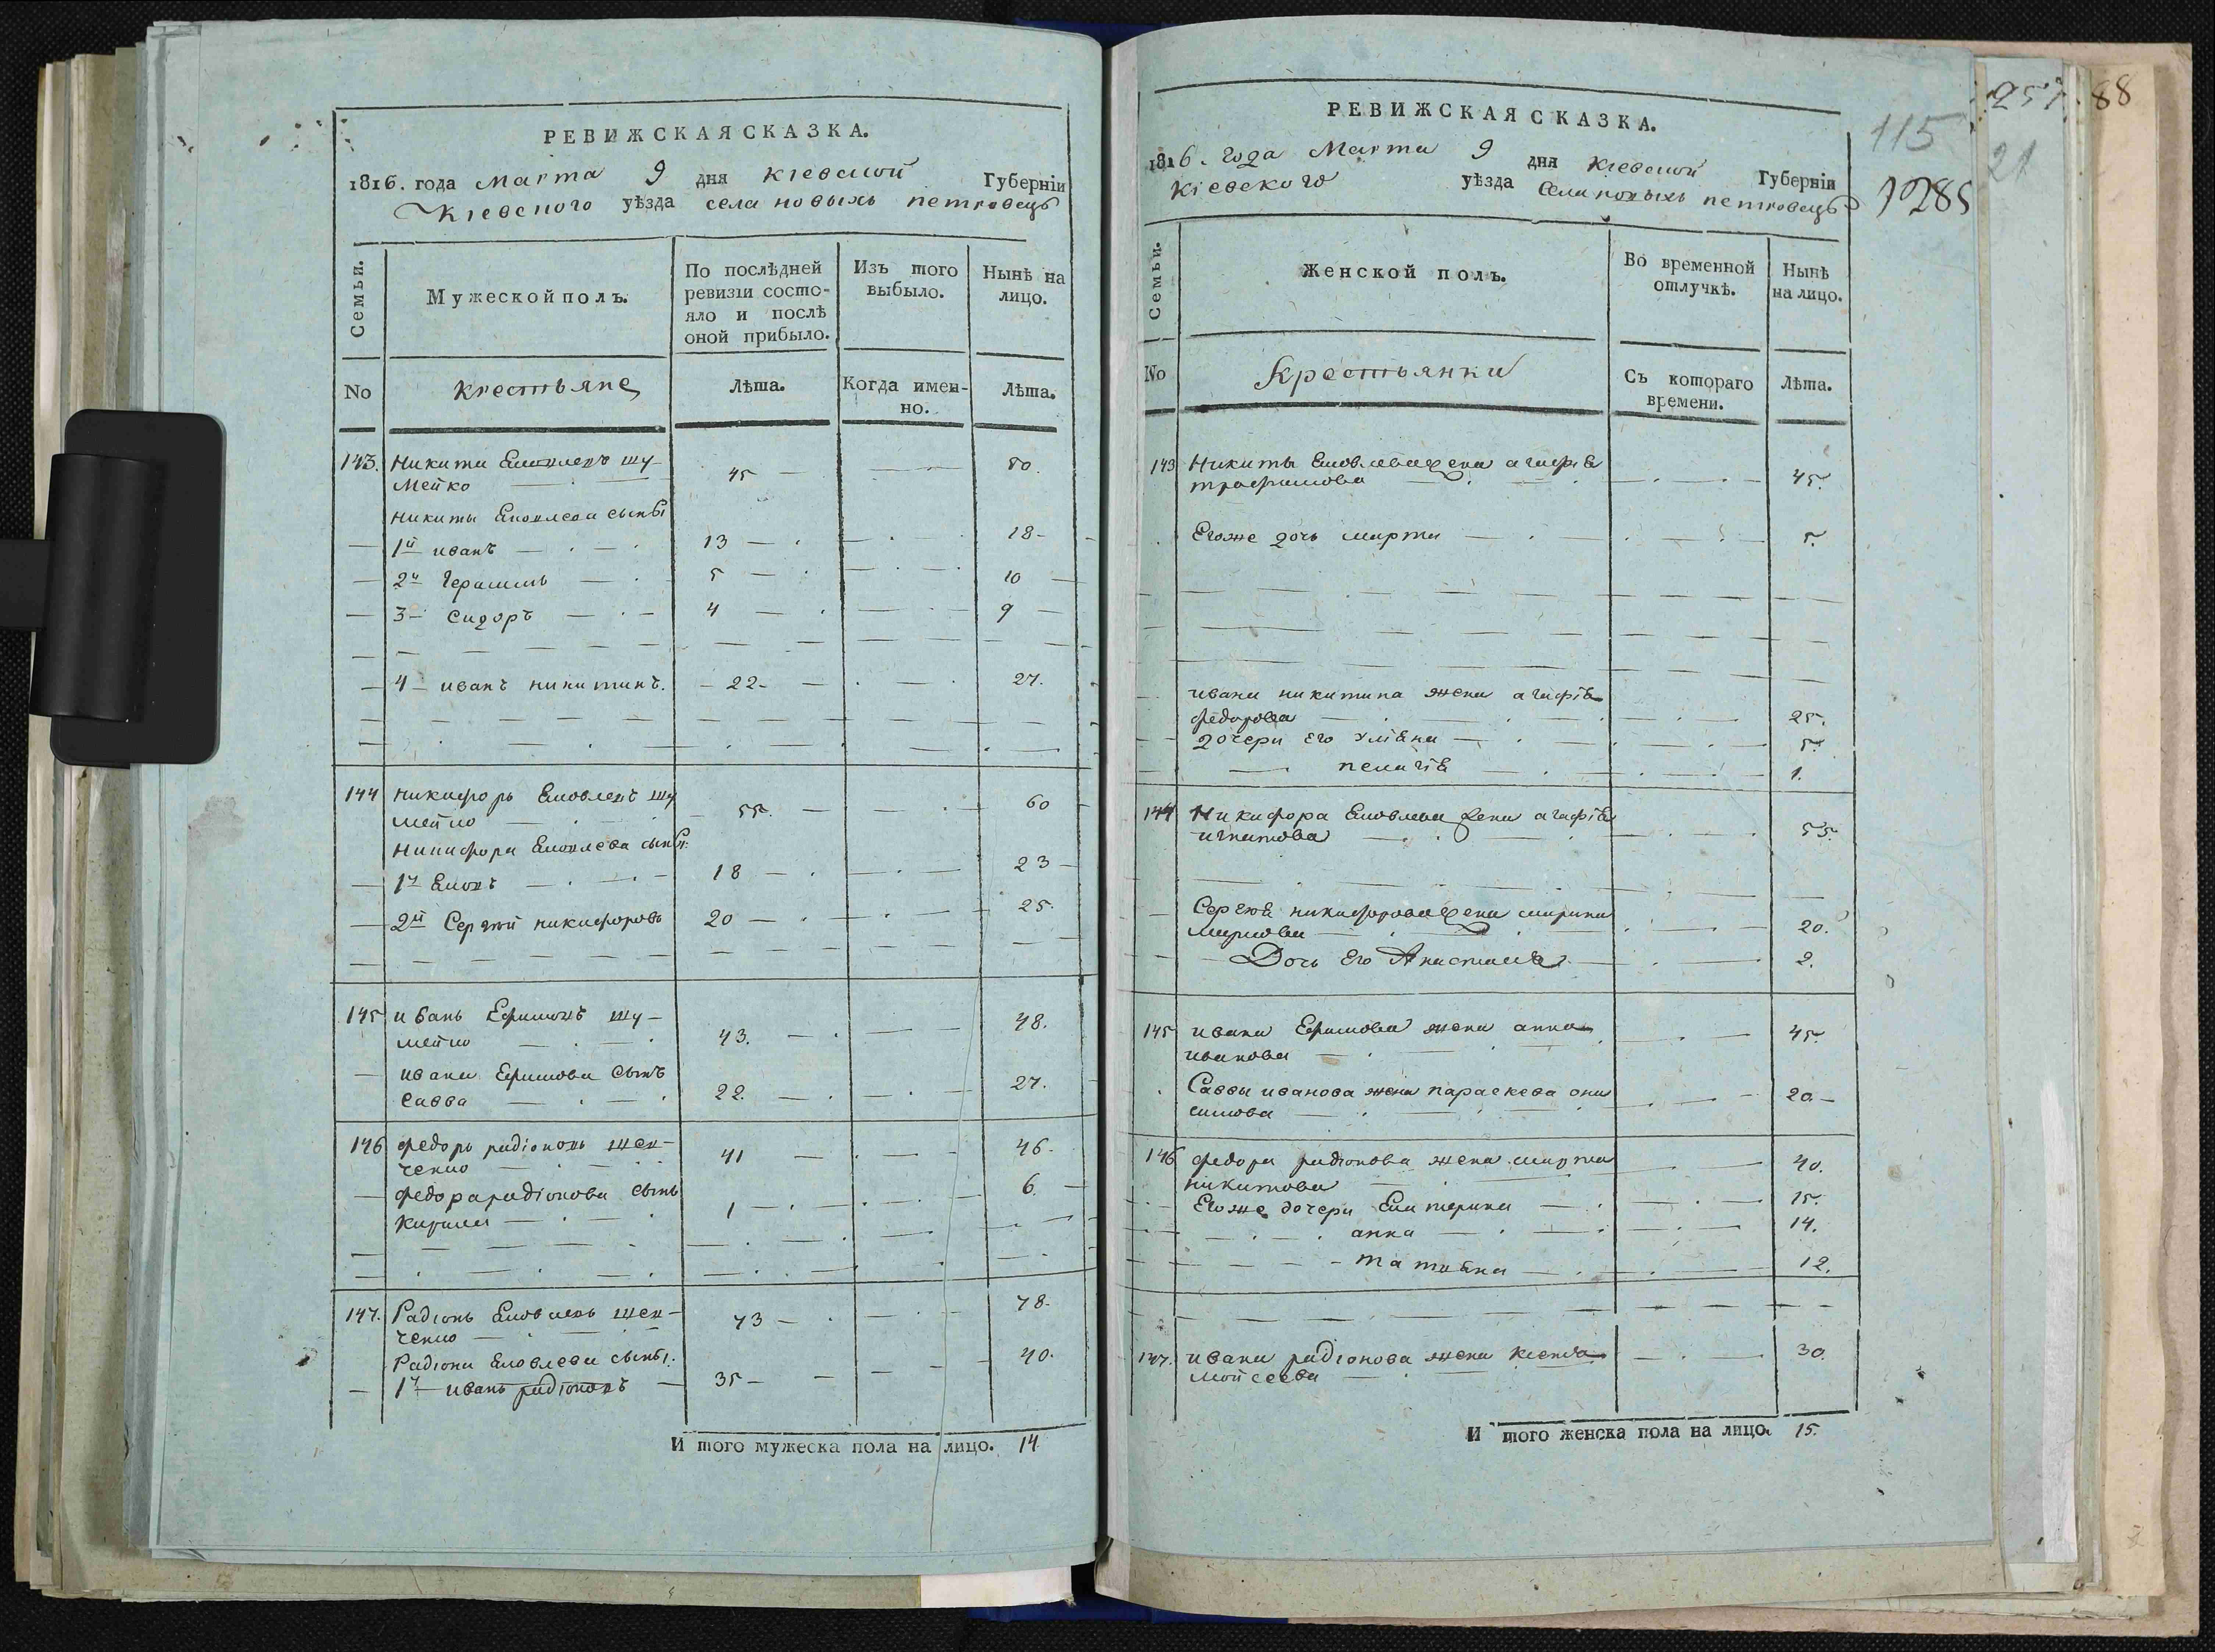 РЕВИЖСКАЯ СКАЗКА.
1816. года Марта 9 дня Кіевской Губерніи
Кіевского уѣзда села новыхъ петровецъ
Семьи.
Мужеской полъ.
По послѣдней ревизіи состо-
яло и послѣ
оной прибыло.
Изъ того
выбыло.
Нынѣ на
лицо.
No
крестьяне
Лѣта.
Когда имен-
но.
Лѣта.
143. Никита Яковлевъ шу- 45 50.
мейко
Никиты Яковлева сыны
1й иванъ 13 18
2й Герасимъ 5 10
3 Сидоръ 4 9
4 иванъ никитинъ. 22 27.
144 Никифоръ Яковлевъ шу 55. 60
мейко
Никифора Яковлева сыны:
1й Яковъ 18 23
2й Сергѣй никифоровъ 20 25.
145 иванъ Ефимовъ шу- 43. 48.
мейко
ивана Ефимова сынъ
Савва 22. 27.
146 федоръ радіоновъ шев- 41 46.
ченко
федора радіонова сынъ
Кирила 1 6.
147. Радіонъ Яковлевъ шев- 73 78.
ченко
Радіона Яковлева сыны.
1й иванъ радіоновъ 35 40.
И того мужеска пола на лицо. 14
РЕВИЖСКАЯ СКАЗКА.
1816. года Марта 9 дня Кіевской Губерніи
Кіевского уѣзда Села новыхъ петровецъ
115
1285
257
88
21
Семьи.
Женской полъ.
Во временной
отлучкѣ.
Нынѣ
на лицо.
No
Крестьянки
Съ котораго
времени.
Лѣта.
143 Никиты Яковлева жена агафія
трофимова 45.
Егоже дочь марта 5.
ивана никитина жена агафія
федорова 25.
дочери его уліяна 5.
пелагія 1.
144 Никифора Яковлева жена агафія
игнатова 55.
Сергѣя никифорова жена марина
маркова 20.
Дочь его Анастасія 2.
145 ивана Ефимова жена анна 45.
иванова
Саввы иванова жена параскева они 20
симова
146 федора радіонова жена марта 40.
никитова
Егоже дочери Екатерина 15.
анна 14.
татияна 12.
147. ивана радіонова жена ксенія 30.
мойсеева
И того женска пола на лицо. 15.